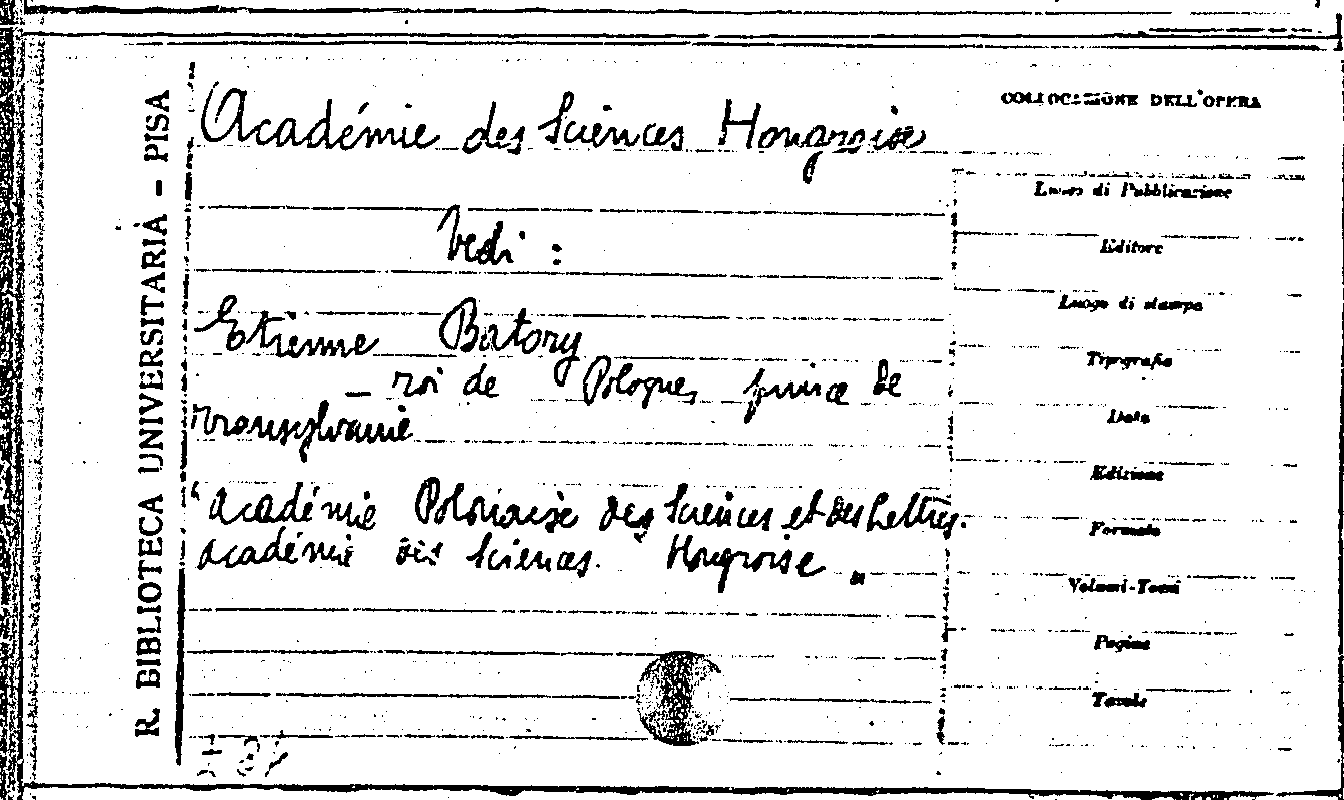 R. BIBLIOTECA UNIVERSITARIA - PISA
Académie des Sciences Hongroise
Vedi :
Etienne Batory
- roi de Pologne, prince de
Transylvanie
"Académie Polonaise des Sciences et des Lettres.
Académie des Sciences. Hongroise"
COLLOCAZIONE DELL'OPERA
Luogo di Pubblicazione
Editore
Luogo di stampa
Tipografia
Data
Edizione
Formato
Volumi-Tomi
Pagine
Tavole